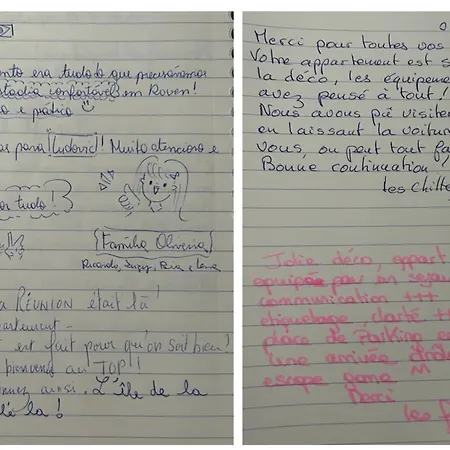 nto era tudo do que precisávamos
estadia confortável em Rouen!
o e prático
as para Ludovic! Muito atencioso e
or tudo!
{Família Oliveira}
a RÉUNION était là!
artement -
est fait pour qu'on soit bien!
bienvenus au TOP!!
nuez ainsi. L'île de la
là!
Merci pour toutes vos
Votre appartement est s
la déco, les équipeme
avez pensé à tout!
Nous avons pu visiter
en laissant la voitur
vous, on peut tout fa
Bonne continuation!
les Chilte
Jolie déco, appart
équipée pour un séjour
communication +++
étiquetage clarté ++
place de Parking e
une arrivée drôl
escape game
Merci
les f